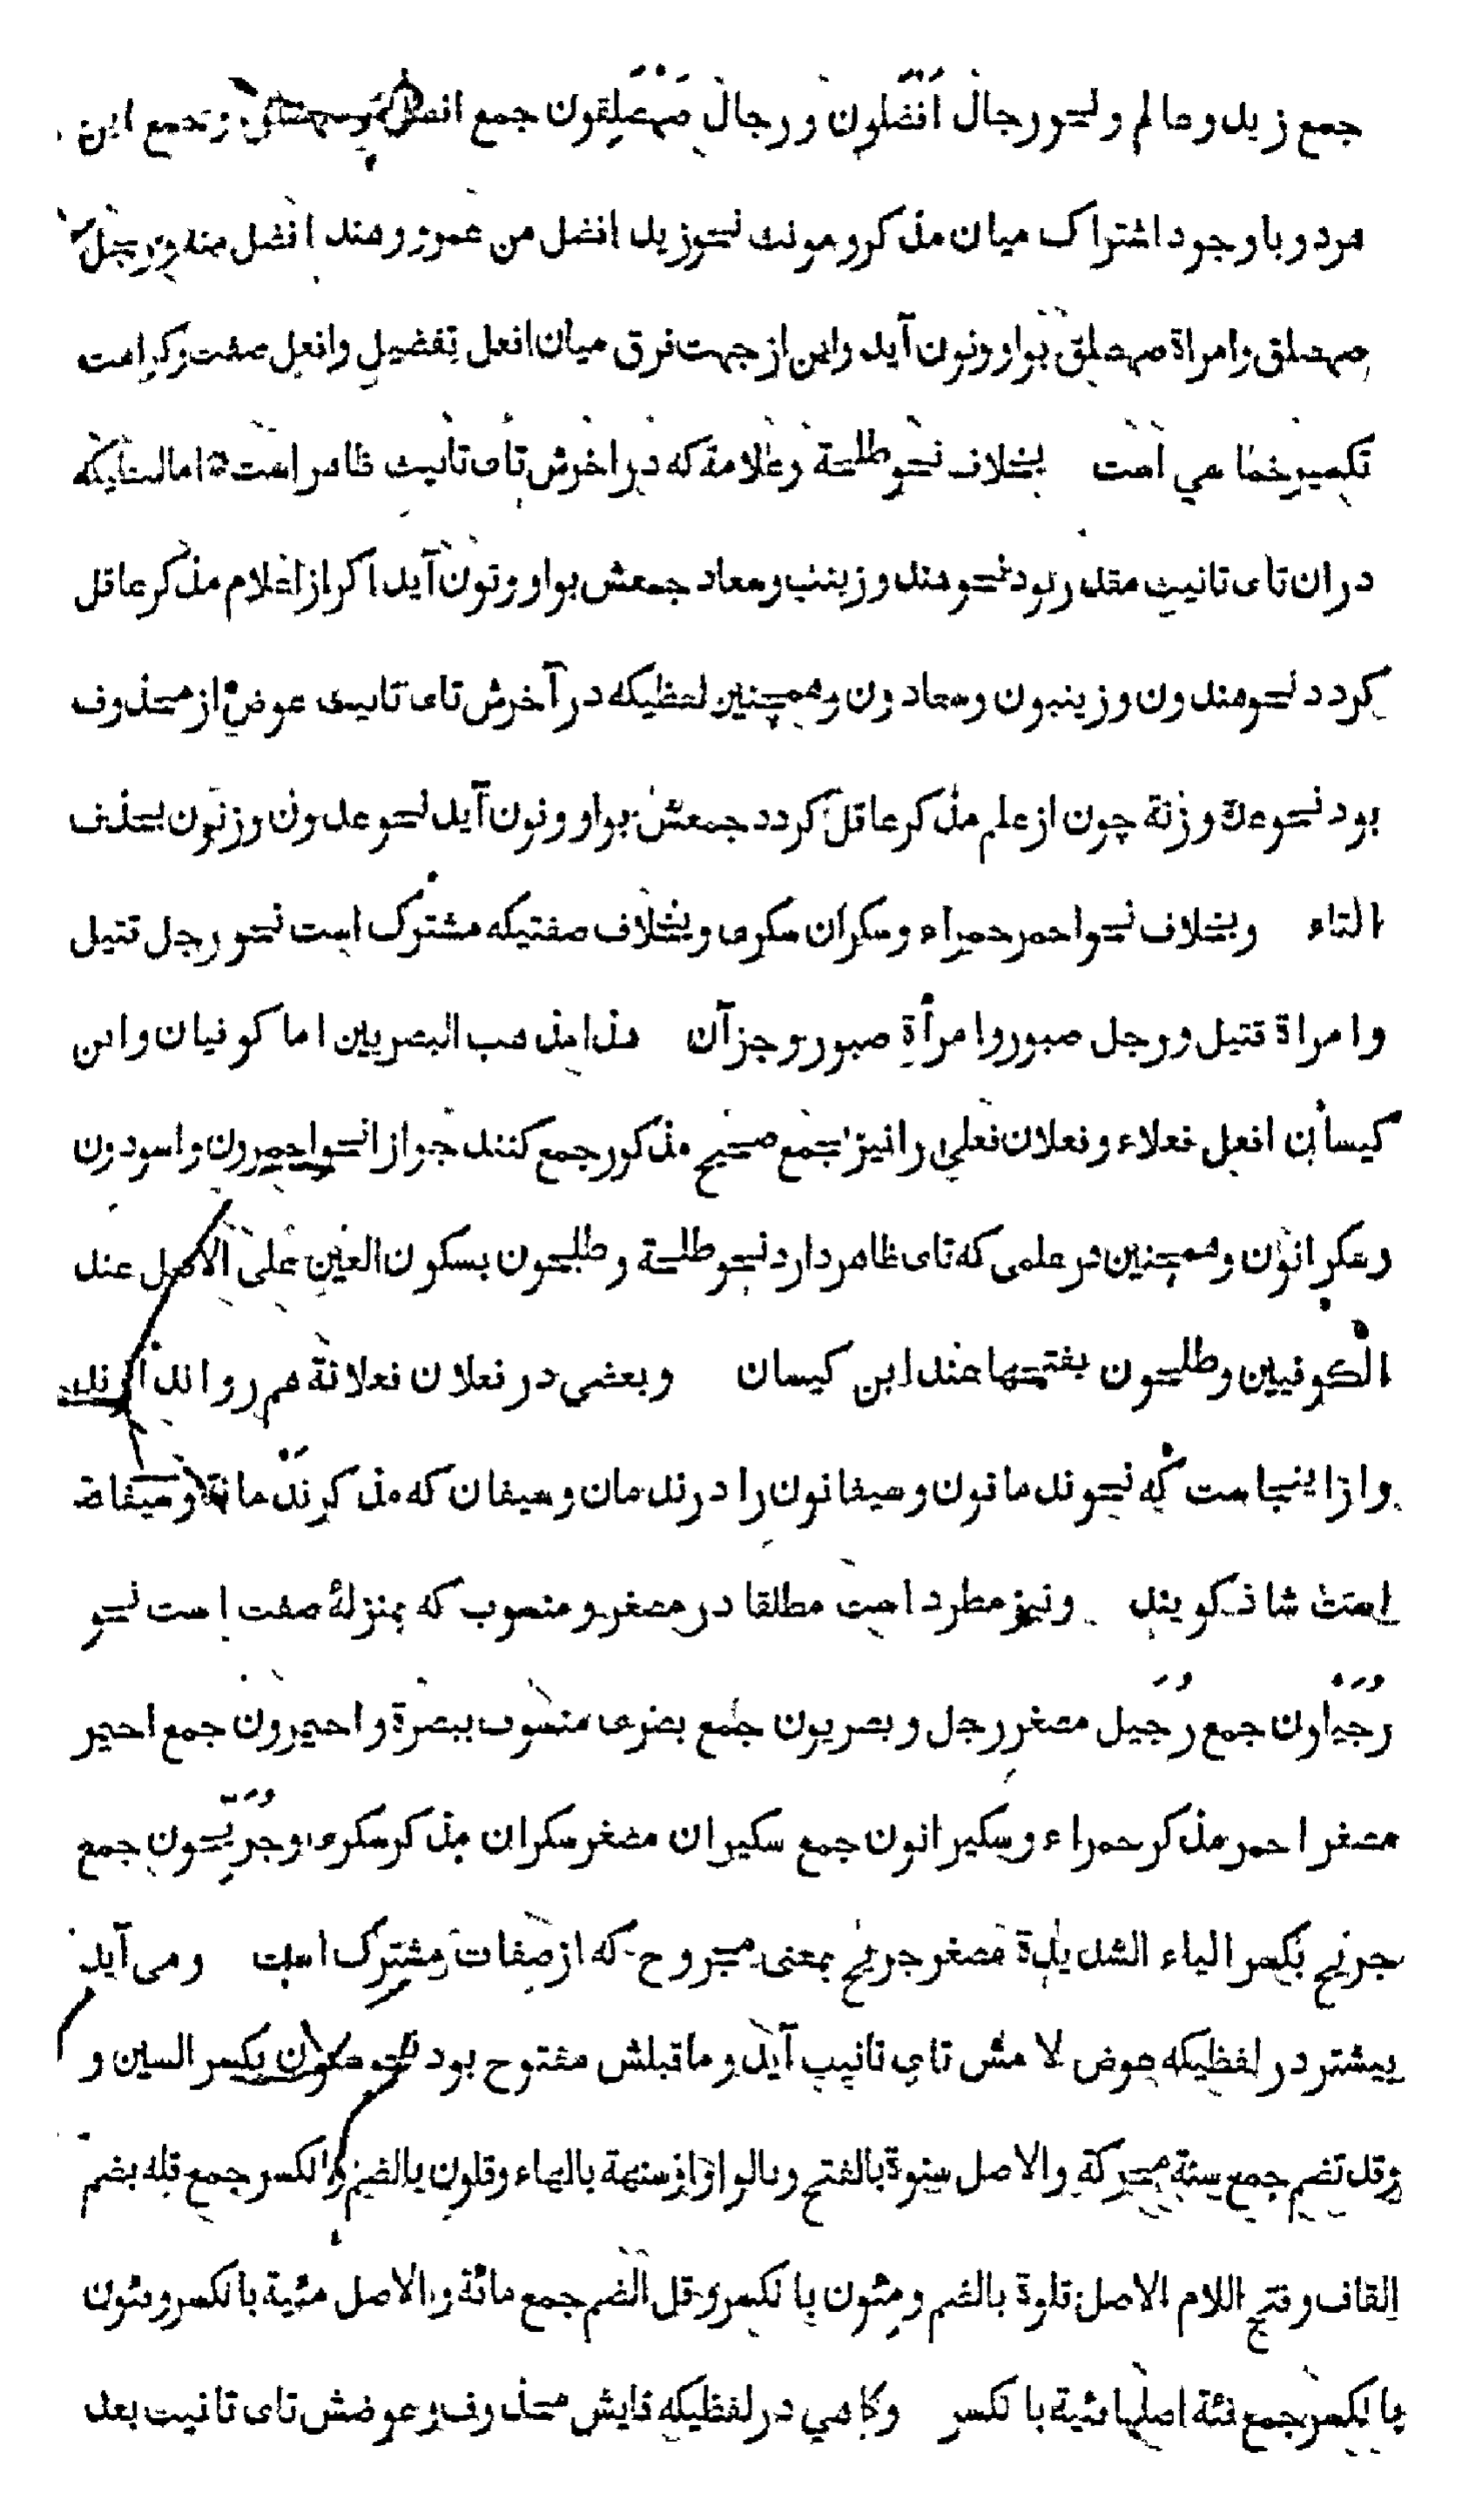 جمع زيد وعالم ونحو رجال افضلون ورجال صهصلقون جمع افضل وصهصلق وجمع اين
مرد و باوجود اشتراك ميان مذكر و مونث نحو زيد افضل من عمرو وهند افضل منه ورجل
صهصلق وامراة صهصلق بواو ونون آيد واين از جهت فرق ميان افعل تفضيل وافعل صفت وكراهت
تكسير خماسي است بخلاف نحو طلحة وعلامة كه در اخرش تاى تانيث ظاهر است اما لفظيكه
دران تاى تانيث مقدر بود نحو هند وزينب وسعاد جمعش بواو ونون آيد اكر از اعلام مذكر عاقل
كردد نحو هندون وزينبون وسعادون وهمچنين لفظيكه در آخرش تاى تانيث عوض از محذوف
بود نحو عدة وزنة چون از علم مذكر عاقل كردد جمعش بواو ونون آيد نحو عدون وزنون بحذف
التاء وبخلاف نحو احمر حمراء وسكران سكرى وبخلاف صفتيكه مشترك است نحو رجل قتيل
وامراة قتيل ورجل صبور وامرأة صبور وجز آن هذا مذهب البصريين اما كوفيان وابن
كيسان افعل فعلاء وفعلان فعلي را نيز بجمع صحيح مذكور جمع كنند جوازا نحو احمرون واسودون
وسكرانون وهمچنين در علمى كه تاى ظاهر دارد نحو طلحة وطلحون بسكون العين على الاصل عند
الكوفيين وطلحون بفتحها عند ابن كيسان وبعضى در فعلان فعلانة هم روا ندارند
وازاينجاست كه نحو ندمانون وسيفانون را در ندمان وسيفان كه مذكر ندمانة وسيفانة
است شاذ كويند ونيز مطرد است مطلقا در مصغر ومنسوب كه بمنزلۀ صفت است نحو
رجيلون جمع رجيل مصغر رجل وبصريون جمع بصرى منسوب ببصرة واحيمرون جمع احيمر
مصغر احمر مذكر حمراء وسكيرانون جمع سكيران مصغر سكران مذكر سكرى وجريحون جمع
جريح بكسر الياء الشديدة مصغر جريح بمعنى مجروح كه از صفات مشترك است ومى آيد
بيشتر در لفظيكه عوض لامش تاى تانيث آيد وماقبلش مفتوح بود نحو سنون بكسر السين و
وقد تضم جمع سنة محركة والاصل سنوة بالفتح وبالواو او سنهة بالهاء وقلون بالضم والكسر جمع قله بضم
القاف وفتح اللام الاصل قلوة بالضم ومئون بالكسر وقل الضم جمع مائة والاصل مئية بالكسر وفئون
بالكسر جمع فئة اصلها فئية بالكسر وكاهي در لفظيكه فايش محذوف وعوضش تاى تانيث بعد